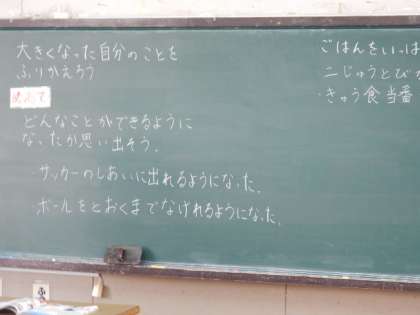 大きくなった自分のことを
ふりかえろう
めあて
どんなことができるように
なったか思い出そう。
サッカーのしあいに出れるようになった。
ボールをとおくまでなげれるようになった。
ごはんをいっぱ
二じゅうとび
・きゅう食当番